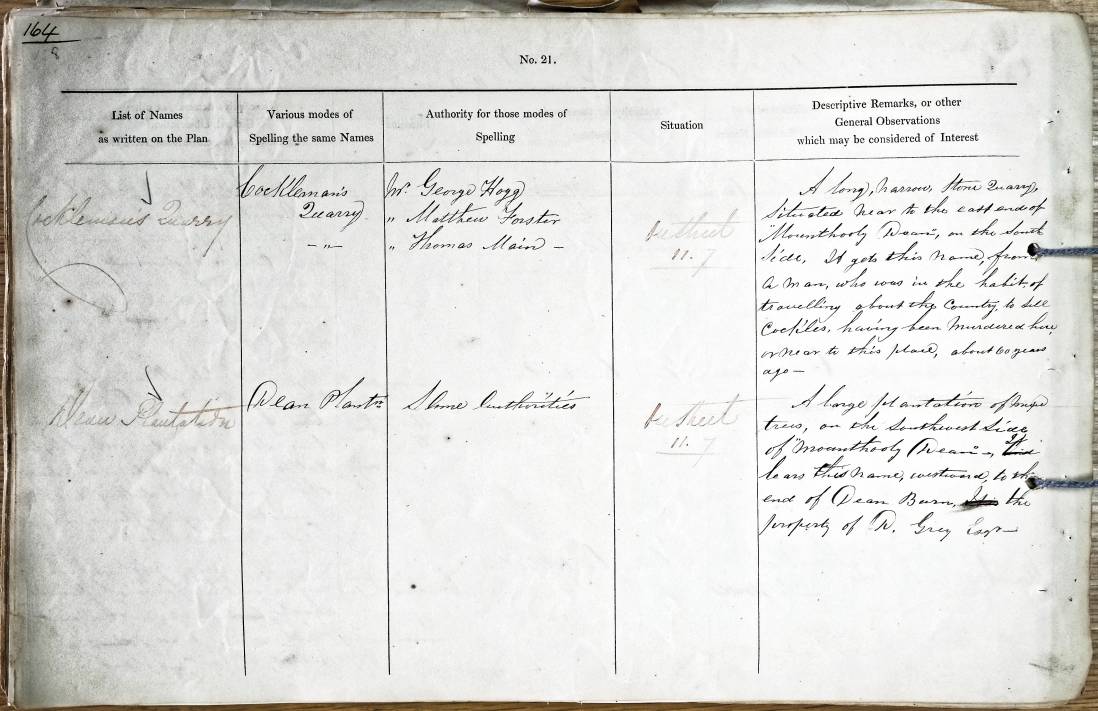 164
No. 21.
List of Names
as written on the Plan
Various modes of
Spelling the same Names
Authority for those modes of
Spelling
Situation
Descriptive Remarks, or other
General Observations
which may be considered of Interest
Cocklemans Quarry
Cockleman's
Quarry
— „ —
Mr. George Hogg
„ Matthew Forster
„ Thomas Main —
On Sheet
11. 7
A long, narrow, Stone Quarry,
Situated near to the east end of
"Mounthooly Dean", on the South
Side. It gets this name, from
a man, who was in the habit of
travelling about the Country, to sell
Cockles, having been Murdered here
or near to this place, about 60 years
ago —
Dean Plantation
Dean Plantn.
Same Authorities
On Sheet
11. 7
A large plantation of mixed
trees, on the Southwest Side
of "Mounthooly Dean" —, It
bears this name, westward, to the
end of Dean Burn, the
property of R. Grey Esqr —